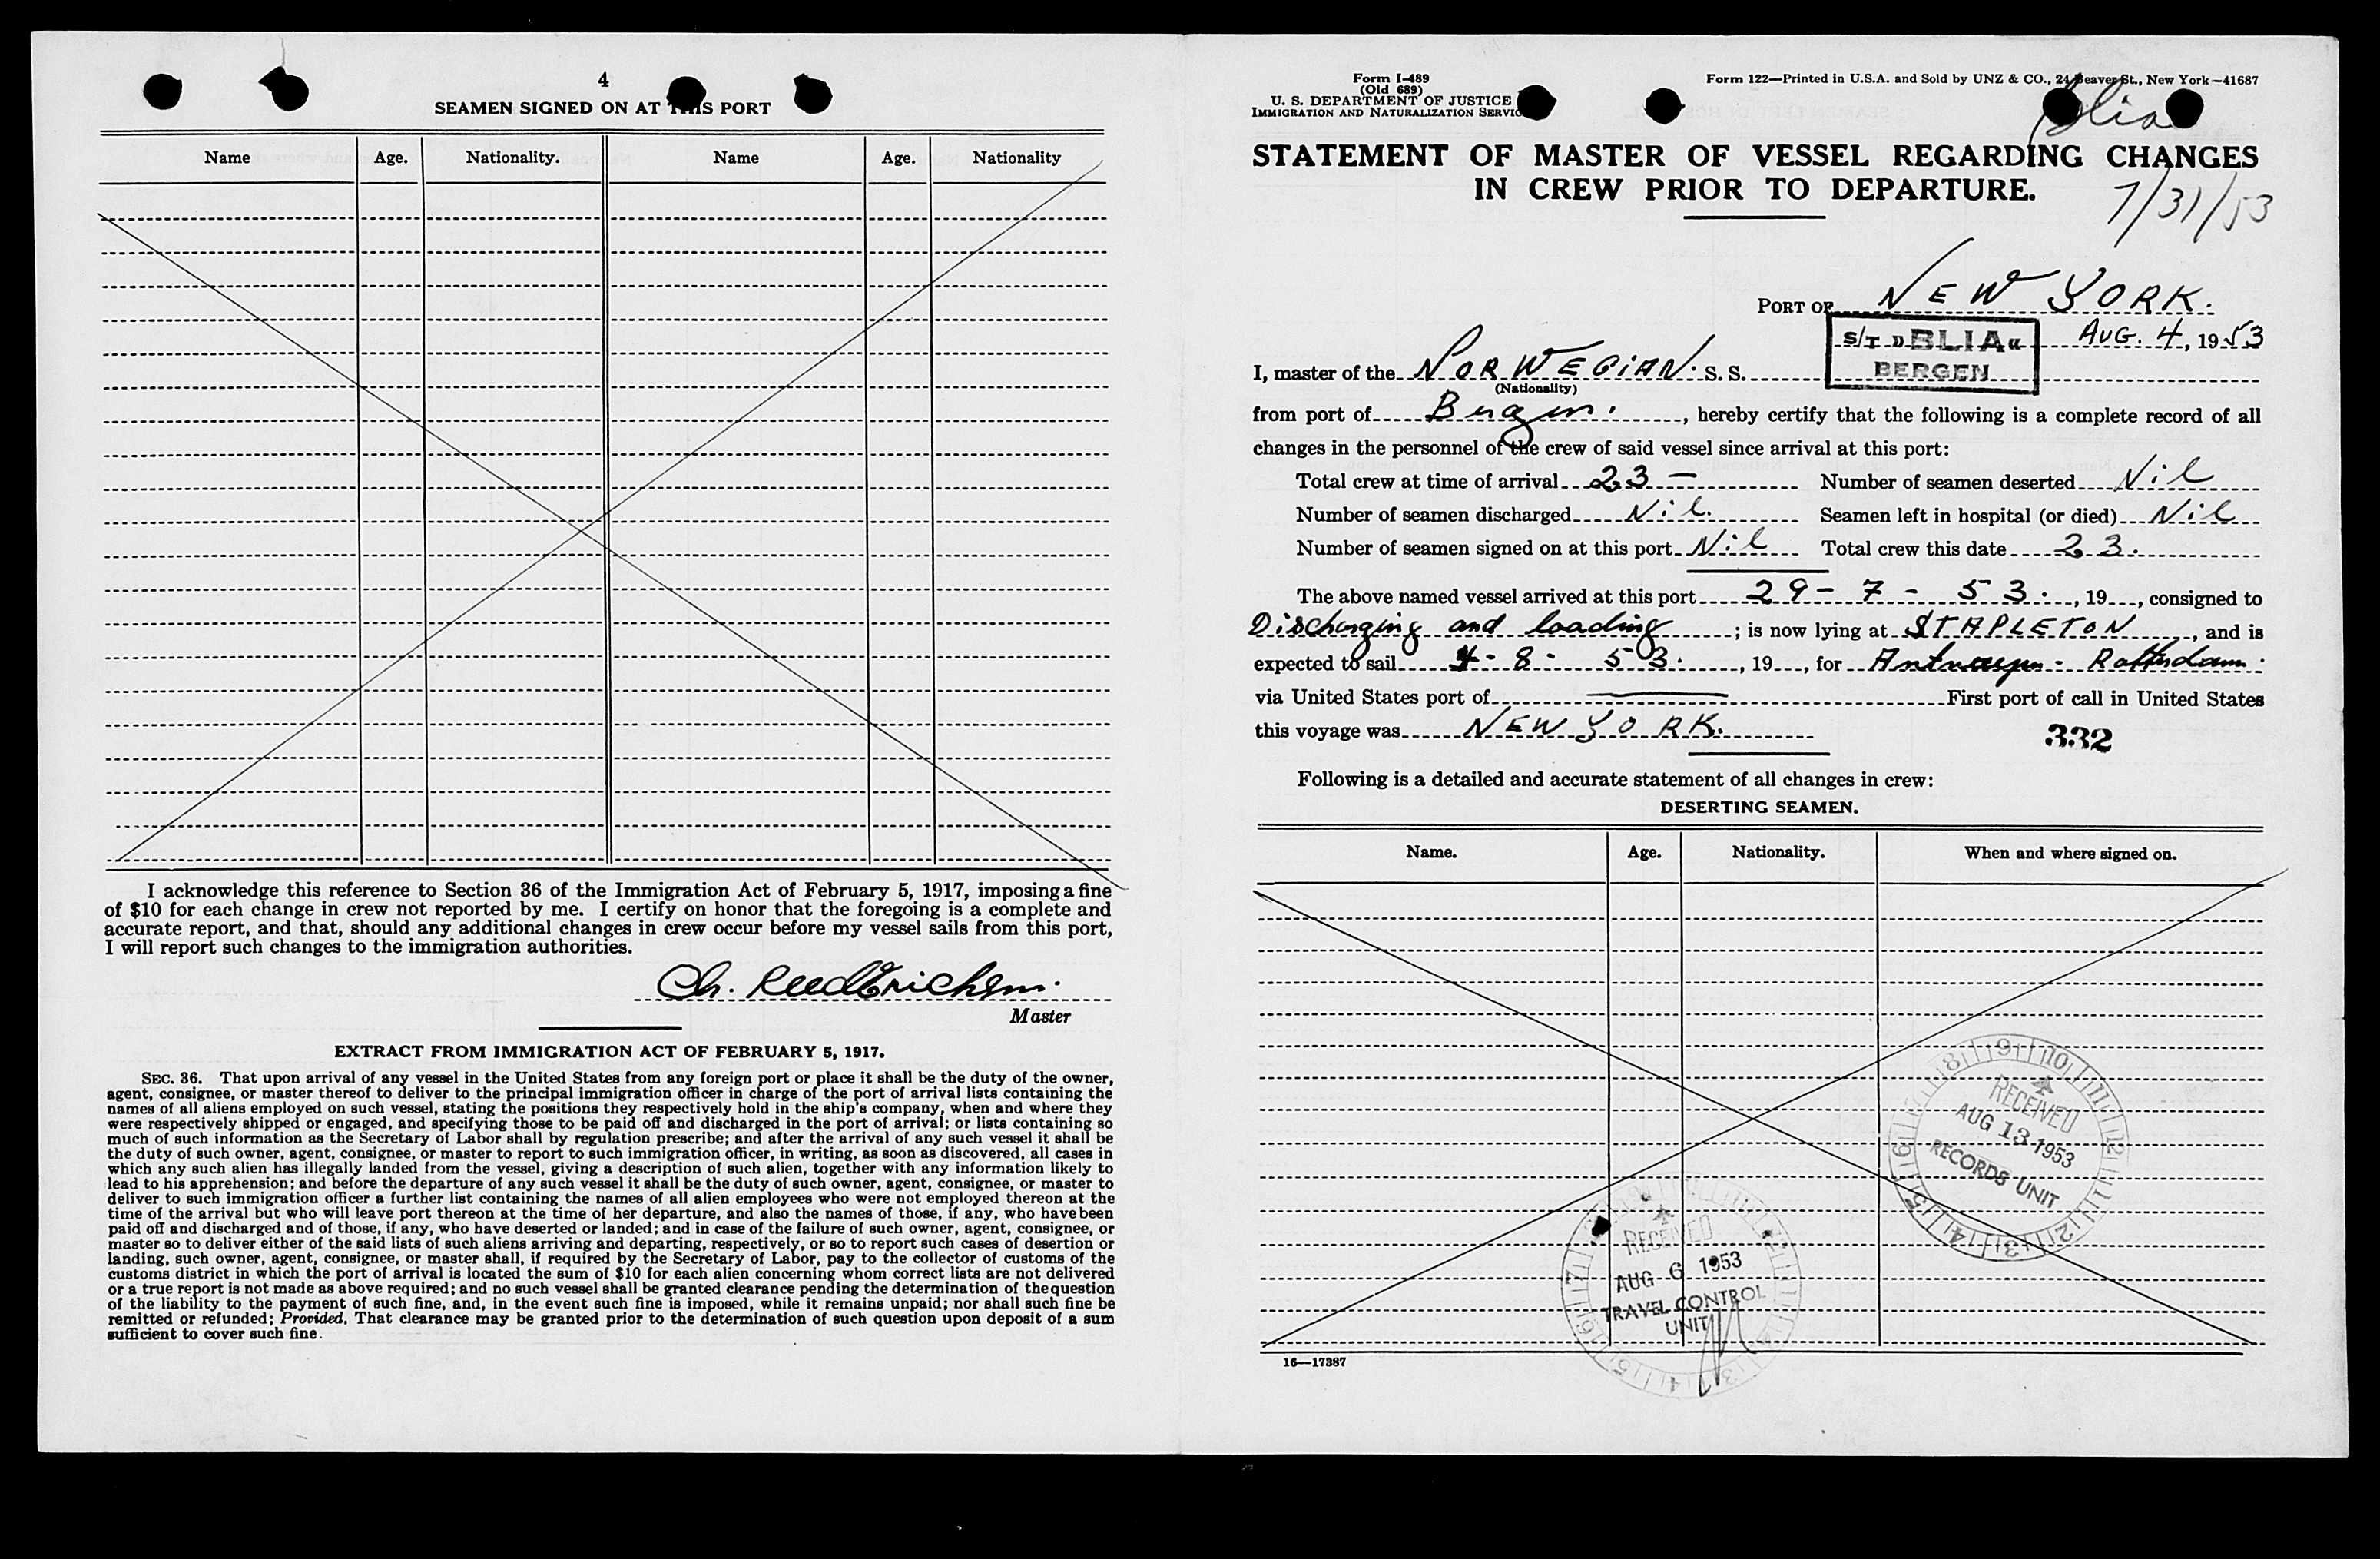 4
SEAMEN SIGNED ON AT THIS PORT
Name Age. Nationality. Name Age. Nationality
I acknowledge this reference to Section 36 of the Immigration Act of February 5, 1917, imposing a fine
of $10 for each change in crew not reported by me. I certify on honor that the foregoing is a complete and
accurate report, and that, should any additional changes in crew occur before my vessel sails from this port,
I will report such changes to the immigration authorities.
Ch. ReedErichsen.
Master
EXTRACT FROM IMMIGRATION ACT OF FEBRUARY 5, 1917.
SEC. 36. That upon arrival of any vessel in the United States from any foreign port or place it shall be the duty of the owner,
agent, consignee, or master thereof to deliver to the principal immigration officer in charge of the port of arrival lists containing the
names of all aliens employed on such vessel, stating the positions they respectively hold in the ship's company, when and where they
were respectively shipped or engaged, and specifying those to be paid off and discharged in the port of arrival; or lists containing so
much of such information as the Secretary of Labor shall by regulation prescribe; and after the arrival of any such vessel it shall be
the duty of such owner, agent, consignee, or master to report to such immigration officer, in writing, as soon as discovered, all cases in
which any such alien has illegally landed from the vessel, giving a description of such alien, together with any information likely to
lead to his apprehension; and before the departure of any such vessel it shall be the duty of such owner, agent, consignee, or master to
deliver to such immigration officer a further list containing the names of all alien employees who were not employed thereon at the
time of the arrival but who will leave port thereon at the time of her departure, and also the names of those, if any, who have been
paid off and discharged and of those, if any, who have deserted or landed; and in case of the failure of such owner, agent, consignee, or
master so to deliver either of the said lists of such aliens arriving and departing, respectively, or so to report such cases of desertion or
landing, such owner, agent, consignee, or master shall, if required by the Secretary of Labor, pay to the collector of customs of the
customs district in which the port of arrival is located the sum of $10 for each alien concerning whom correct lists are not delivered
or a true report is not made as above required; and no such vessel shall be granted clearance pending the determination of the question
of the liability to the payment of such fine, and, in the event such fine is imposed, while it remains unpaid; nor shall such fine be
remitted or refunded; Provided, That clearance may be granted prior to the determination of such question upon deposit of a sum
sufficient to cover such fine.
Form I-489
(Old 689)
U. S. DEPARTMENT OF JUSTICE
IMMIGRATION AND NATURALIZATION SERVICE
Form 122—Printed in U.S.A. and Sold by UNZ & CO., 24 Beaver St., New York—41687
Blia
STATEMENT OF MASTER OF VESSEL REGARDING CHANGES
IN CREW PRIOR TO DEPARTURE.
7/31/53
PORT OF NEW YORK.
S/T »BLIA« AUG. 4, 1953
BERGEN
I, master of the NORWEGIAN. S. S.
(Nationality)
from port of Bergen., hereby certify that the following is a complete record of all
changes in the personnel of the crew of said vessel since arrival at this port:
Total crew at time of arrival 23 — Number of seamen deserted Nil
Number of seamen discharged Nil. Seamen left in hospital (or died) Nil
Number of seamen signed on at this port Nil Total crew this date 23.
The above named vessel arrived at this port 29 - 7 - 53., 19, consigned to
Discharging and loading; is now lying at STAPLETON, and is
expected to sail 4 - 8 - 53., 19, for Antwerpen - Rotterdam.
via United States port of — First port of call in United States
this voyage was NEW YORK.
332
Following is a detailed and accurate statement of all changes in crew:
DESERTING SEAMEN.
Name. Age. Nationality. When and where signed on.
RECEIVED
AUG 13 1953
RECORDS UNIT
RECEIVED
AUG 6 1953
TRAVEL CONTROL
UNIT
16—17387